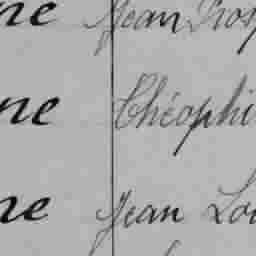 ne Jean Prosp
ne Théophi
ne Jean Lou